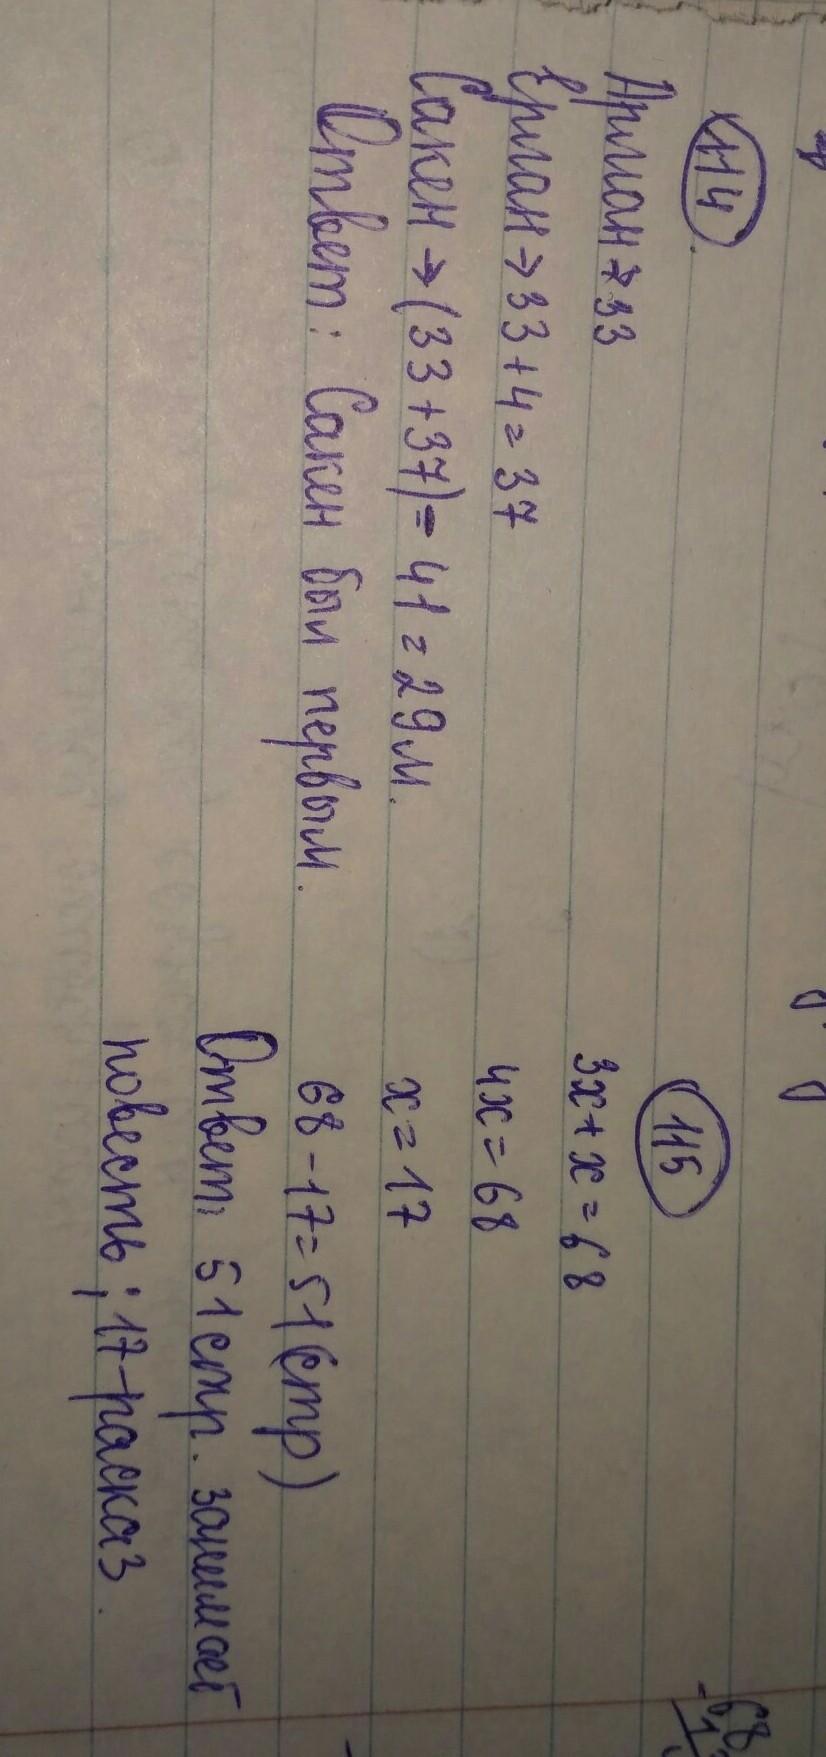 114
Арман→33
Ерлан→33+4=37
Сакен→(33+37)=41=29м.
Ответ: Сакен был первым.
115
3х+х=68
4х=68
х=17
68-17=51(стр)
Ответ: 51 стр. занимает
повесть; 17-расказ.
68